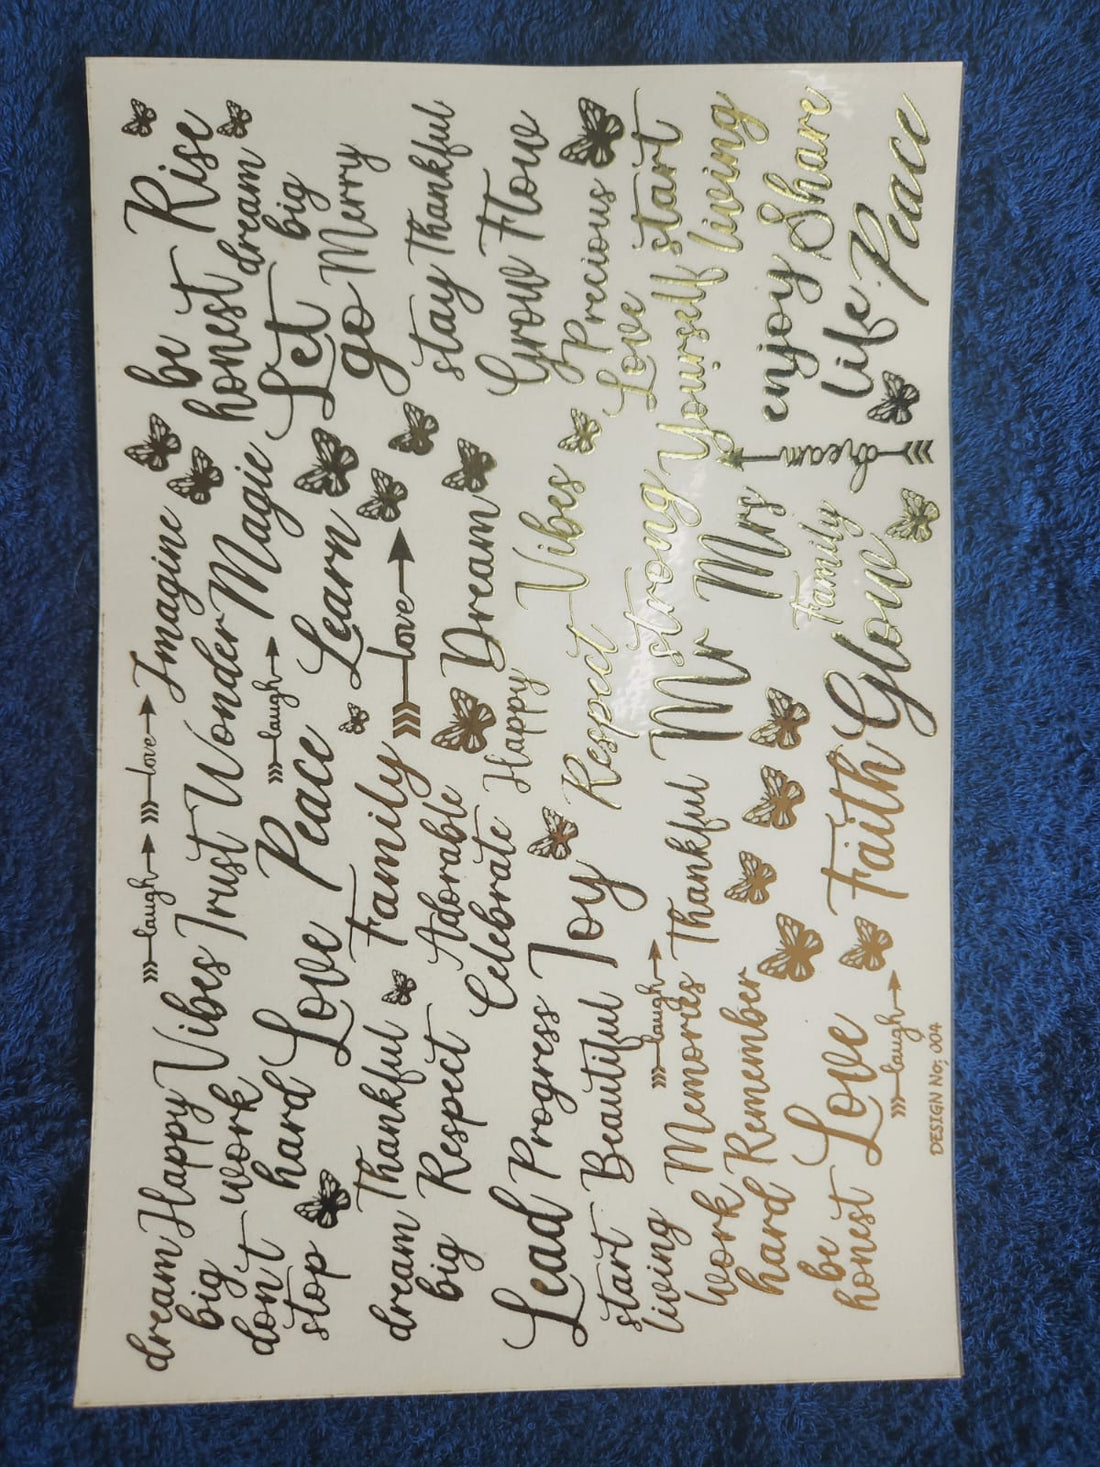 laugh love
Imagine
be Rise
dream Happy Vibes Trust Wonder Magic
big
honest dream
big
don't work
stop hard Love Peace
laugh
Learn
Let
go Merry
dream Thankful Family
love
stay Thankful
big Respect Adorable
Celebrate Happy Dream
Grow Flow
Lead Progress Joy Respect Vibes
Precious
start Beautiful
living
laugh
Mr strong
Love start
Yourself living
Work Memories Thankful
Mrs
enjoy Share
hard Remember
Family
dream
life Peace
be
honest Love Faith Glow
laugh
DESIGN No; 004